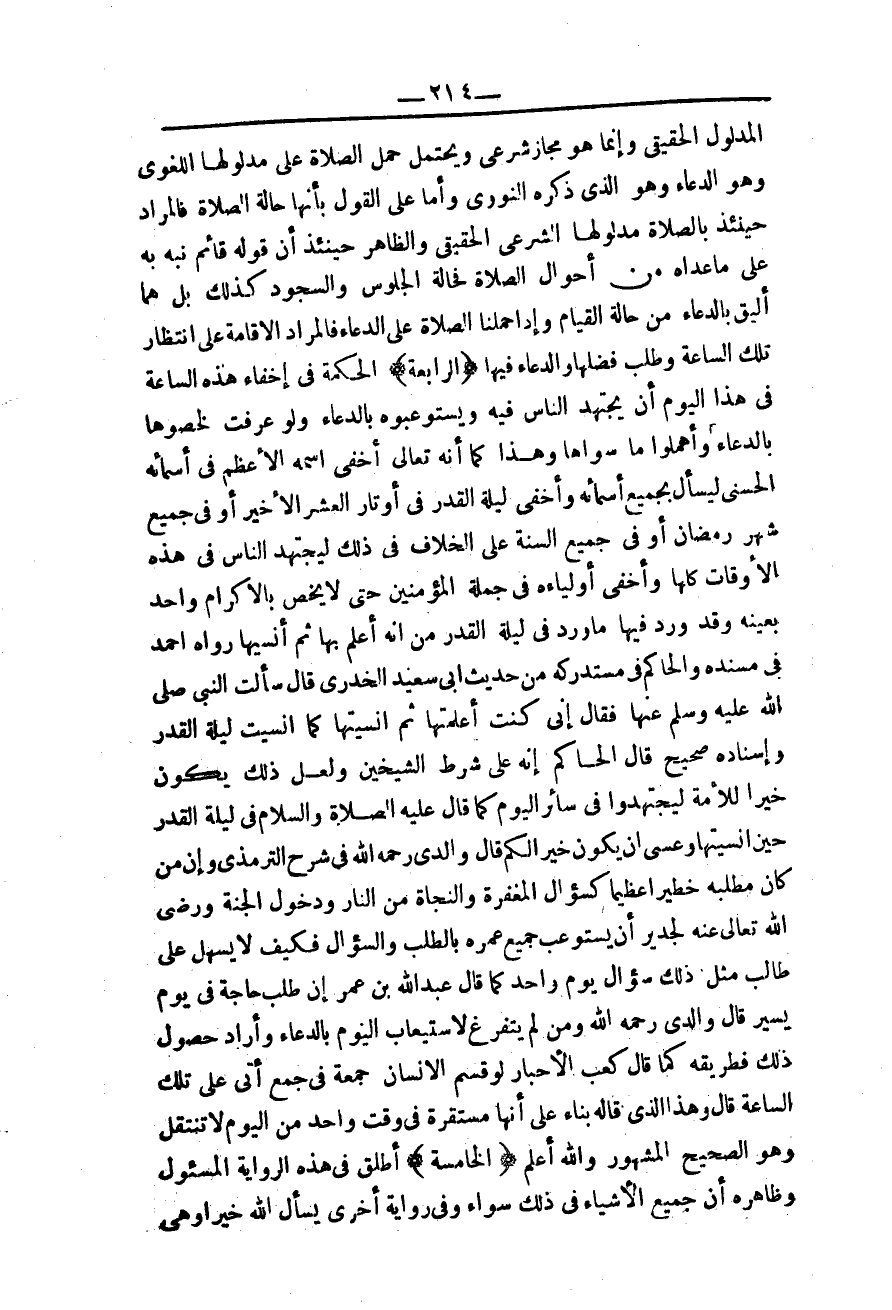 —٢١٤—
المدلول الحقيقى وإنما هو مجاز شرعى ويحتمل حمل الصلاة على مدلولها اللغوى
وهو الدعاء وهو الذى ذكره النورى وأما على القول بأنها حالة الصلاة فالمراد
حينئذ بالصلاة مدلولها الشرعى الحقيقى والظاهر حينئذ أن قوله قائم نبه به
على ماعداه من أحوال الصلاة فحالة الجلوس والسجود كذلك بل هما
أليق بالدعاء من حالة القيام وإداحملنا الصلاة على الدعاء فالمراد الاقامة على انتظار
تلك الساعة وطلب فضلها والدعاء فيها ﴿الرابعة﴾ الحكمة فى إخفاء هذه الساعة
فى هذا اليوم أن يجتهد الناس فيه ويستوعبوه بالدعاء ولو عرفت لخصوها
بالدعاء وأهملوا ما سواها وهذا كما أنه تعالى أخفى اسمه الأعظم فى أسمائه
الحسنى ليسأل بجميع أسمائه وأخفى ليلة القدر فى أوتار العشر الأخير أو فى جميع
شهر رمضان أو فى جميع السنة على الخلاف فى ذلك ليجتهد الناس فى هذه
الأوقات كلها وأخفى أولياءه فى جملة المؤمنين حتى لايخص بالاكرام واحد
بعينه وقد ورد فيها ماورد فى ليلة القدر من انه أعلم بها ثم أنسيها رواه احمد
فى مسنده والحاكم فى مستدركه من حديث ابى سعيد الخدرى قال سألت النبى صلى
الله عليه وسلم عنها فقال إنى كنت أعلمتها ثم انسيتها كما انسيت ليلة القدر
وإسناده صحيح قال الحاكم إنه على شرط الشيخين ولعل ذلك يكون
خيرا للأمة ليجتهدوا فى سائر اليوم كما قال عليه الصلاة والسلام فى ليلة القدر
حين انسيتها وعسى ان يكون خيرا لكم قال والدى رحمه الله فى شرح الترمذى وإن من
كان مطلبه خطيرا عظيما كسؤال المغفرة والنجاة من النار ودخول الجنة ورضى
الله تعالى عنه لجدير أن يستوعب جميع عمره بالطلب والسؤال فكيف لايسهل على
طالب مثل ذلك سؤال يوم واحد كما قال عبدالله بن عمر إن طلب حاجة فى يوم
يسير قال والدى رحمه الله ومن لم يتفرغ لاستيعاب اليوم بالدعاء وأراد حصول
ذلك فطريقه كما قال كعب الأحبار لوقسم الانسان جمعة فى جمع أتى على تلك
الساعة قال وهذا الذى قاله بناء على أنها مستقرة فى وقت واحد من اليوم لاتنتقل
وهو الصحيح المشهور والله أعلم ﴿الخامسة﴾ أطلق فى هذه الرواية المسئول
وظاهره أن جميع الأشياء فى ذلك سواء وفى رواية أخرى يسأل الله خيرا وهى